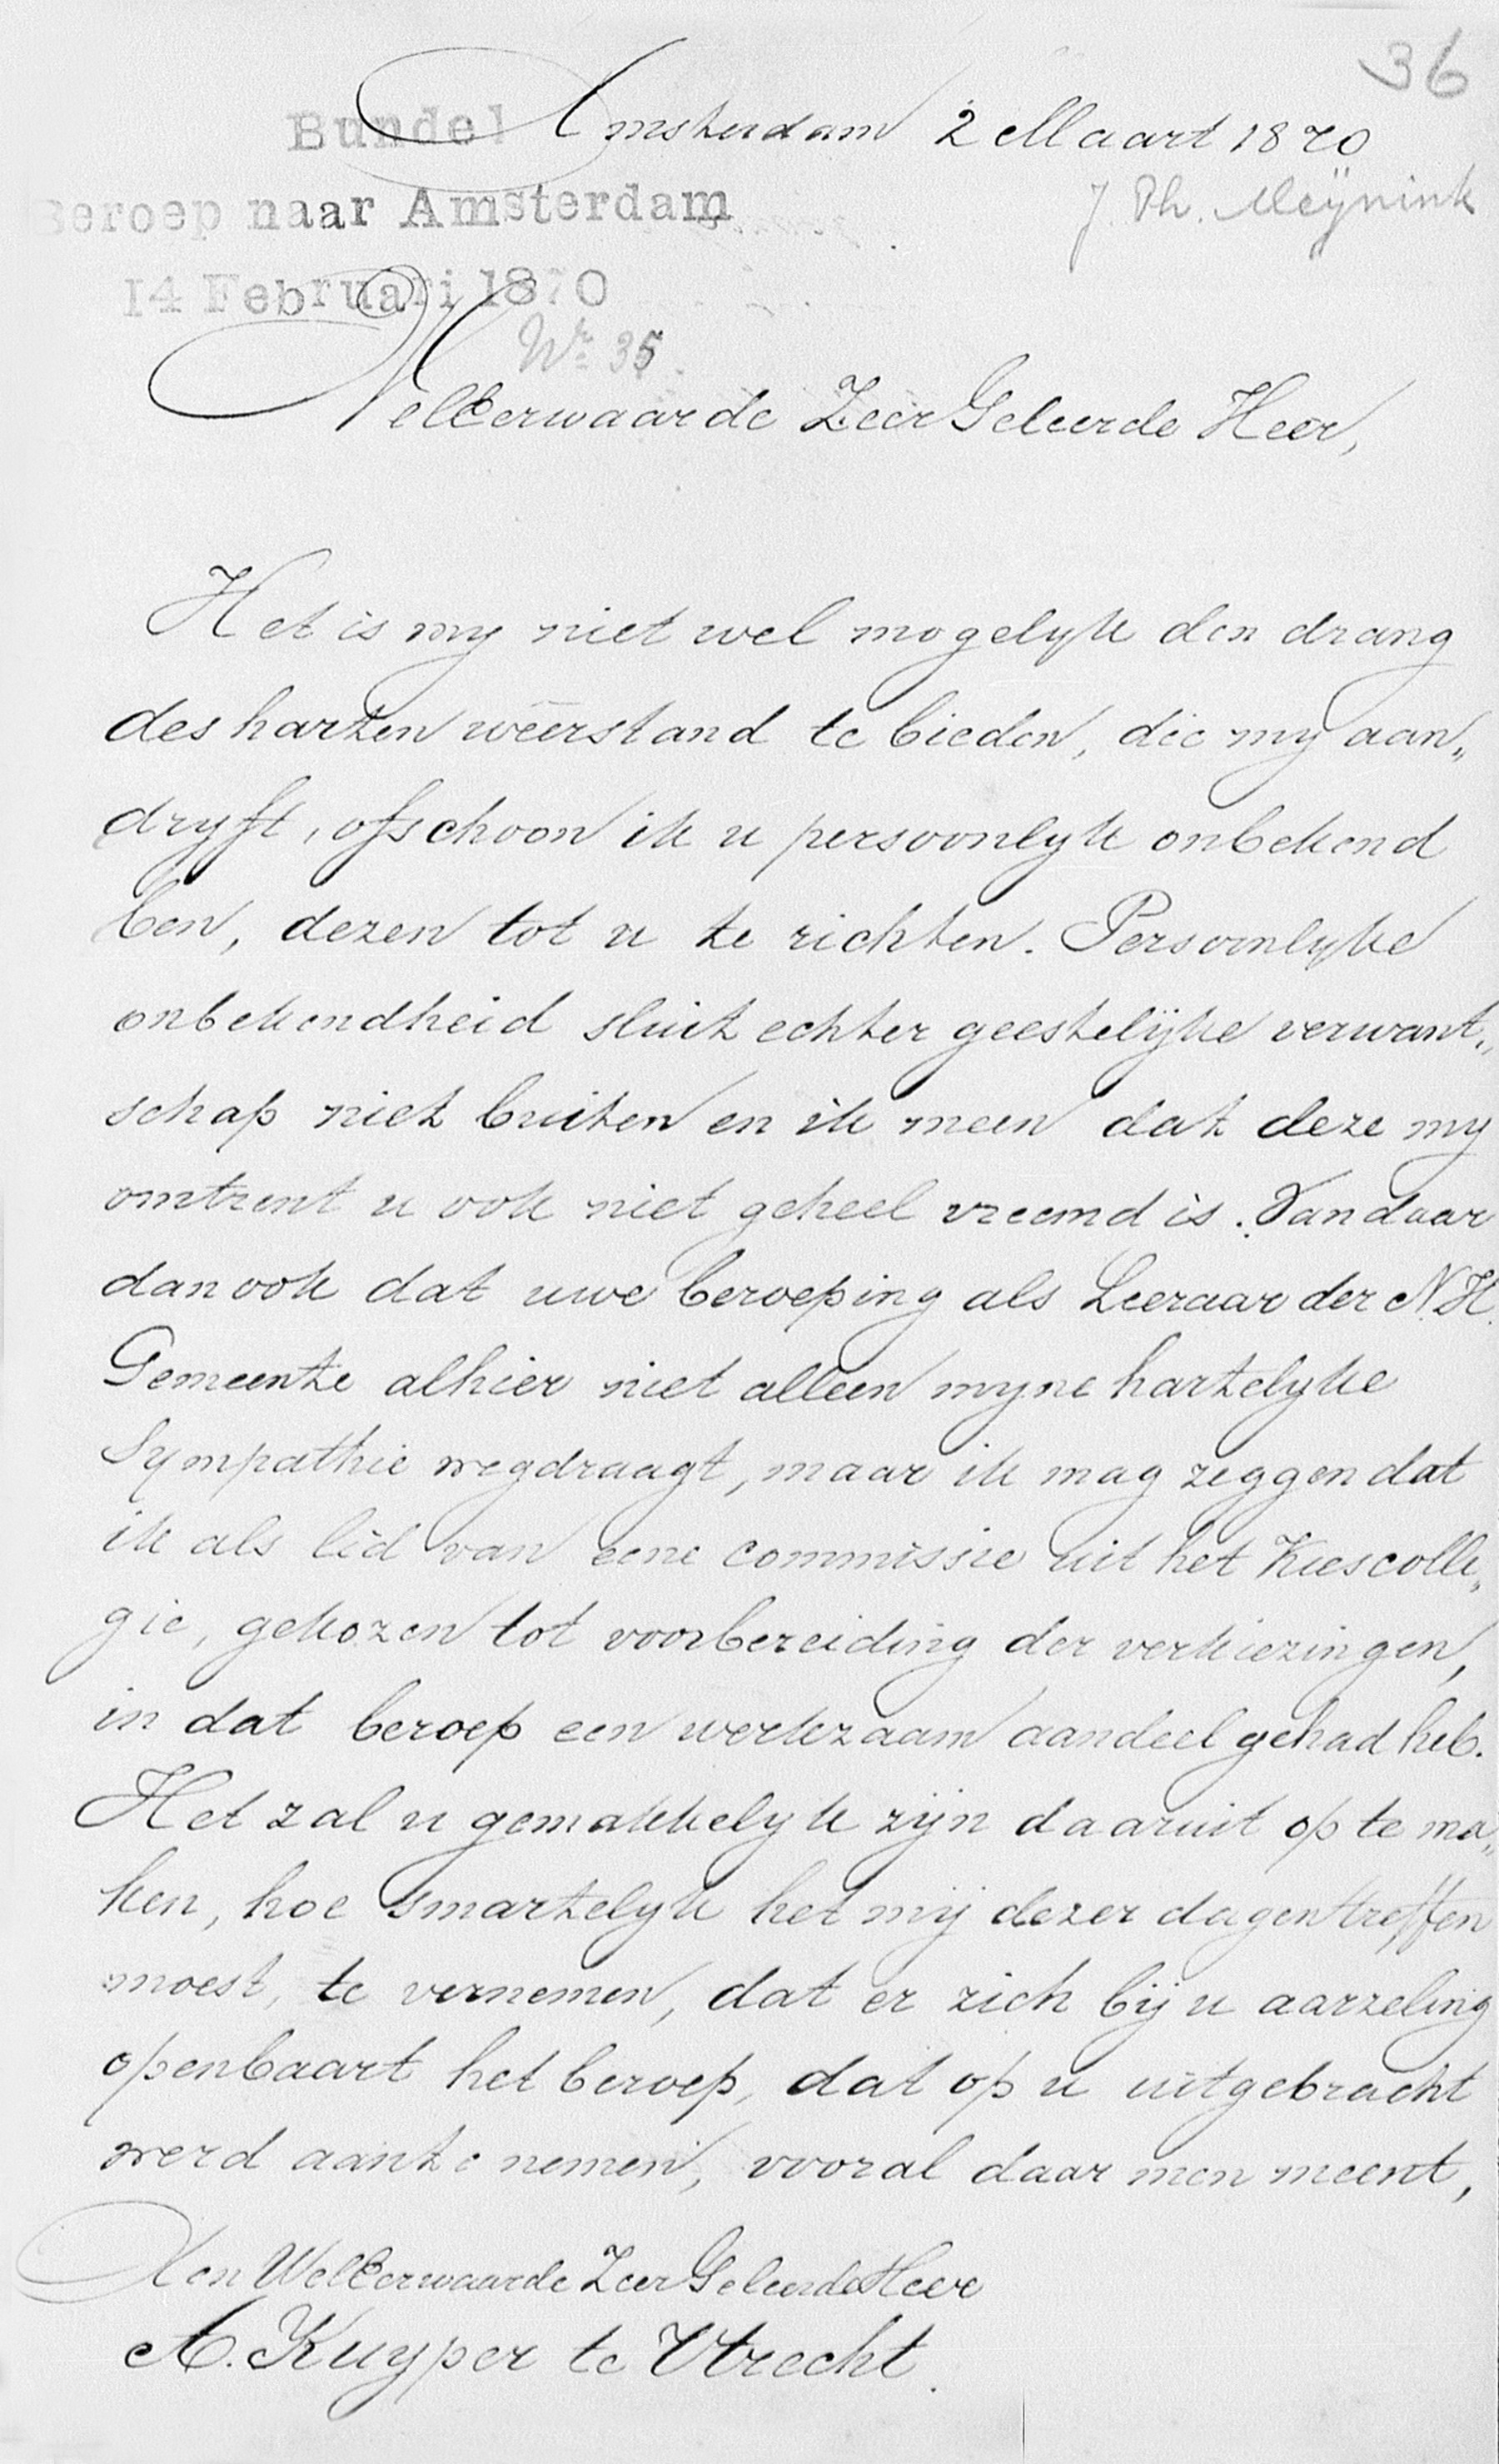 36
Bundel
Amsterdam 2 Maart 1870
Beroep naar Amsterdam
J. Ph. Meÿnink
14 Februari 1870
Nr 35
WelEerwaarde ZeerGeleerde Heer,
Het is my niet wel mogelyk den drang
des harten wéérstand te bieden, die my aan„
dryft, ofschoon ik u persoonlyk onbekend
ben, dezen tot u te richten. Persoonlyke
onbekendheid sluit echter geestelijke verwant„
schap niet buiten en ik meen dat deze my
omtrent u ook niet geheel vreemd is. Van daar
dan ook dat uwe beroeping als Leeraar der N.H.
Gemeente alhier niet alleen myne hartelyke
Sympathie wegdraagt, maar ik mag zeggen dat
ik als lid van eene commissie uit het Kiescolle„
gie, gekozen tot voorbereiding der verkiezingen,
in dat beroep een werkzaam aandeel gehad heb.
Het zal u gemakkelyk zijn daaruit op te ma„
ken, hoe smartelyk het mij dezer dagen treffen
moest, te vernemen, dat er zich bij u aarzeling
openbaart het beroep, dat op u uitgebracht
werd aante nemen, vooral daar men meent,
Den WelEerwaarde ZeerGeleerde Heer
A. Kuyper te Utrecht.